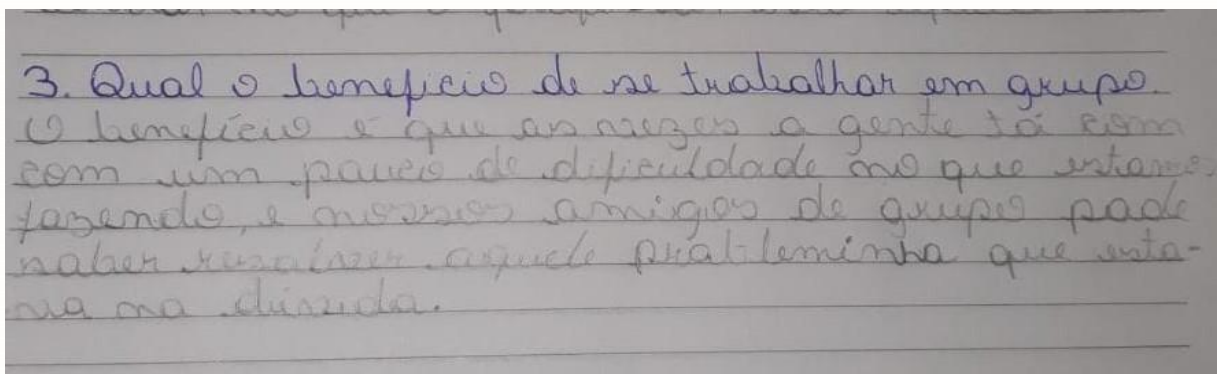 3. Qual o beneficio de se trabalhar em grupo.
O benefício é que as vezes a gente tá com
com um pouco de dificuldade no que estamos
fazendo, e nossos amigos de grupo pode
saber resolver aquele probleminha que esta-
va na dúvida.